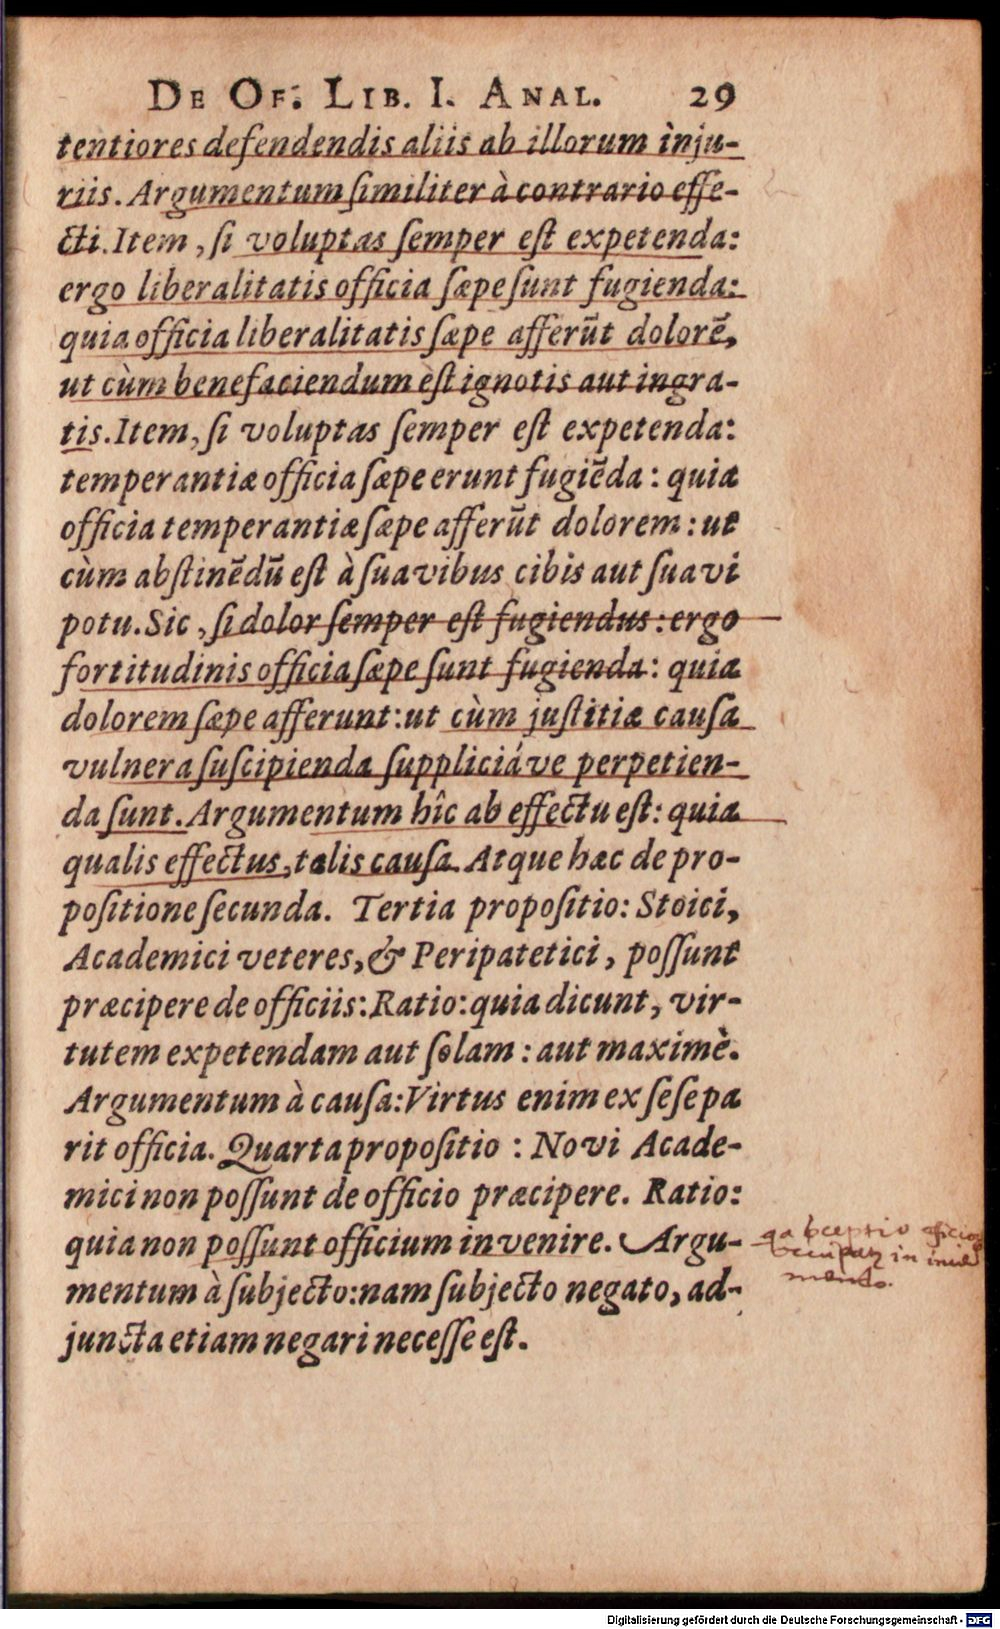 DE OF. LIB. I. ANAL. 29
tentiores defendendis aliis ab illorum inju-
riis. Argumentum ſimiliter à contrario effe-
cti. Item, ſi voluptas ſemper eſt expetenda:
ergo liberalitatis officia ſæpe ſunt fugienda:
quia officia liberalitatis ſæpe afferūt dolorē,
ut cùm benefaciendum eſt ignotis aut ingra-
tis. Item, ſi voluptas ſemper eſt expetenda:
temperantiæ officia ſæpe erunt fugiēda: quia
officia temperantiæ ſæpe afferūt dolorem: ut
cùm abſtinēdū eſt à ſuavibus cibis aut ſuavi
potu. Sic, ſi dolor ſemper eſt fugiendus: ergo
fortitudinis officia ſæpe ſunt fugienda: quia
dolorem ſæpe afferunt: ut cùm juſtitiæ cauſa
vulnera ſuſcipienda ſuppliciáve perpetien-
da ſunt. Argumentum hîc ab effectu eſt: quia
qualis effectus, talis cauſa. Atque hæc de pro-
poſitione ſecunda. Tertia propoſitio: Stoici,
Academici veteres, & Peripatetici, poſſunt
præcipere de officiis: Ratio: quia dicunt, vir-
tutem expetendam aut ſolam: aut maximè.
Argumentum à cauſa: Virtus enim ex ſeſe pa
rit officia. Quarta propoſitio: Novi Acade-
mici non poſſunt de officio præcipere. Ratio:
quia non poſſunt officium invenire. Argu-
mentum à ſubjecto: nam ſubjecto negato, ad-
juncta etiam negari neceſſe eſt.
in
mento.
Digitalisierung gefördert durch die Deutsche Forschungsgemeinschaft - DFG